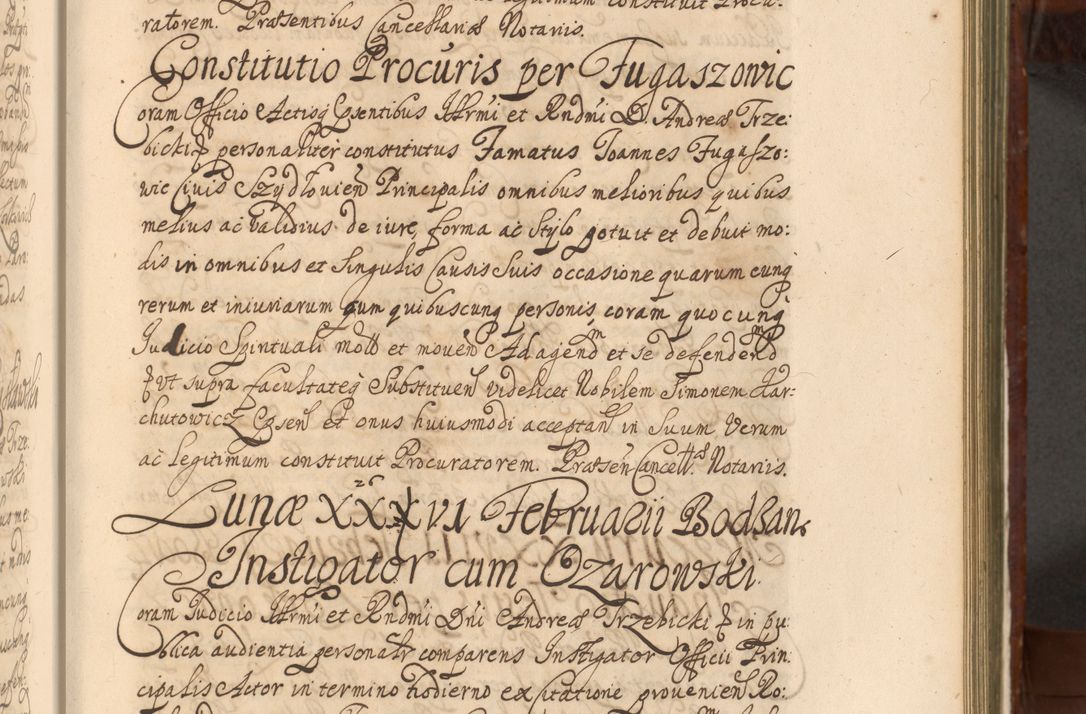 ratorem. Præsentibus Cancellariæ Notariis.
Constitutio Procuris per Fugaszowic
Coram Officio Actisq Præsentibus Illrmi et Rndmi D. Andreæ Trze:
bicki personaliter constitutus Famatus Joannes Fugaszo:
wic Civis Szydlovien Principalis omnibus melioribus quibus
melius ac validius de iure, forma ac stylo potuit et debuit mo:
dis in omnibus et singulis Causis suis occasione quarum cunq
rerum et iniuriarum cum quibuscunq personis coram quocunq
Judicio Spirituali mot et moven Ad agend et se defendend
ut supra facultateq Substituen videlicet Nobilem Simonem Kar:
chutowicz Præsen Et onus huiusmodi acceptan in suum Verum
ac legitimum constituit Procuratorem. Præsen Cancell Notariis.
26
Lunæ XXXVI Februarii Bodzan
Instigator cum Ozarowski.
Coram Judicio Illrmi et Rndmi Dni Andreæ Trzebicki in pu:
blica audientia personalr comparens Instigator Officii Prin:
cipalis Actor in termino hodierno ex Citatione provenien Ro: